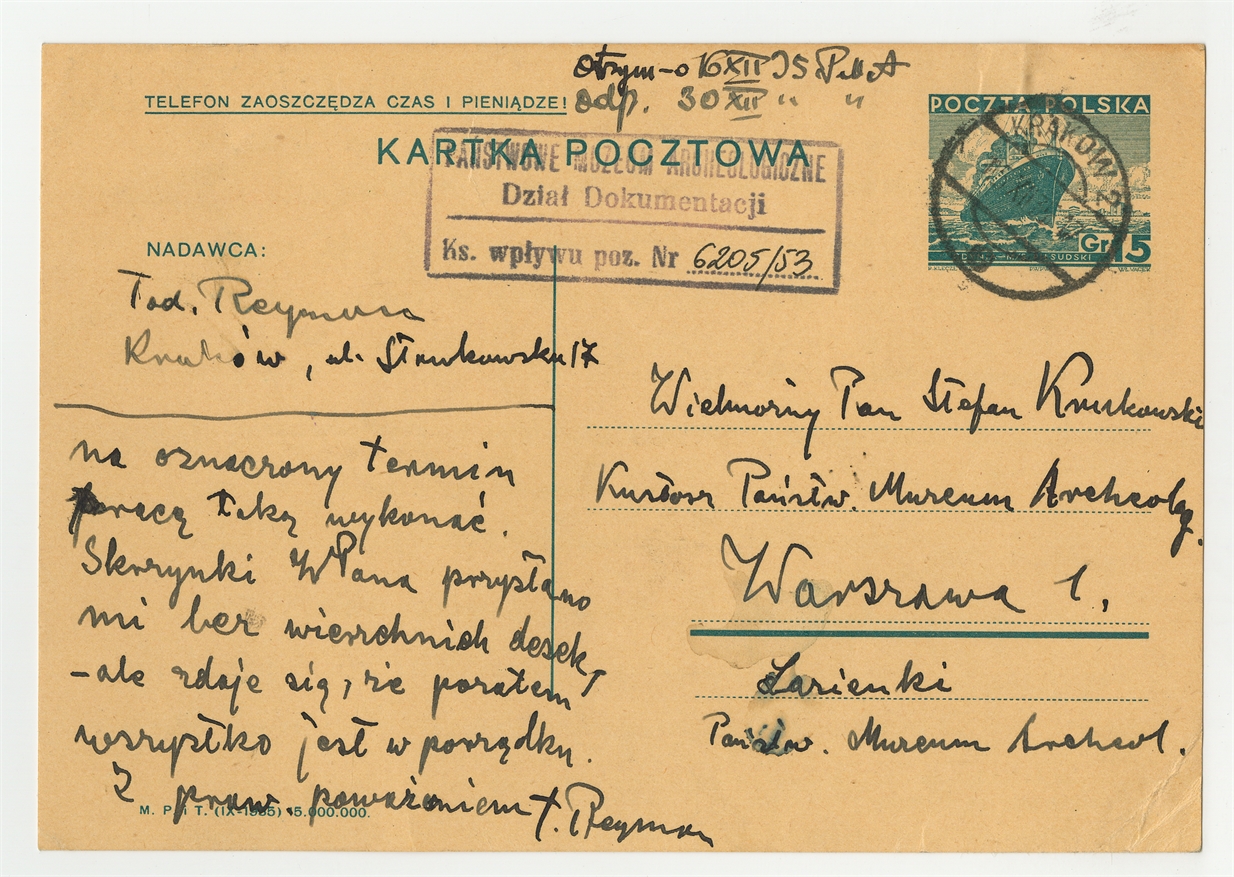 otrzym-o 16XII 35 PMA
TELEFON ZAOSZCZĘDZA CZAS I PIENIĄDZE!
odp. 30XII " "
KARTKA POCZTOWA
POCZTA POLSKA
KRAKÓW 2
Gr 15
PAŃSTWOWE MUZEUM ARCHEOLOGICZNE
Dział Dokumentacji
Ks. wpływu poz. Nr 6205/53
NADAWCA:
Tad. Reyman
Kraków, ul. Sławkowska 17
na oznaczony termin
pracę taką wykonać.
Skrzynki WPana przysłano
mi bez wierzchnich desek
- ale zdaje się, że poza tem
wszystko jest w porządku.
Z praw. poważaniem T. Reyman
M. P. i T. (IX-1935) 5.000.000.
Wielmożny Pan Stefan Krukowski
Kustosz Państw. Muzeum Archeolog.
Warszawa 1.
Łazienki
Państw. Muzeum Archeol.